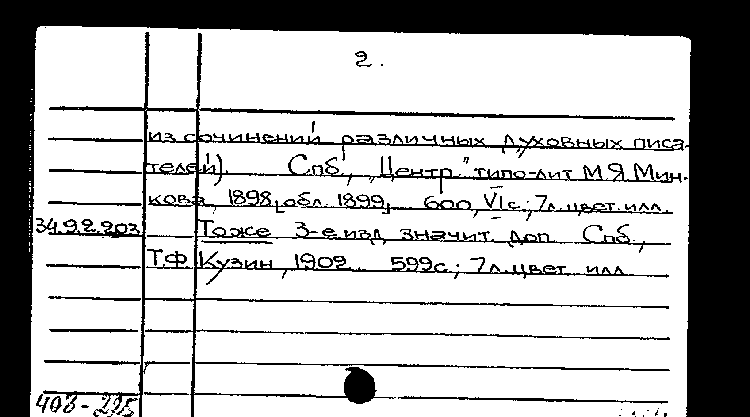 2.
из сочинений различных духовных писа-
телей). Спб, „Центр." типо-лит М.Я.Мин-
кова, 1898, обл. 1899, 600, VI с.; 7л. цвет. илл.
34.9.2.203 То же 3-е изд. значит. доп. Спб.,
Т.Ф. Кузин, 1902. 599с.; 7л. цвет. илл
403-225